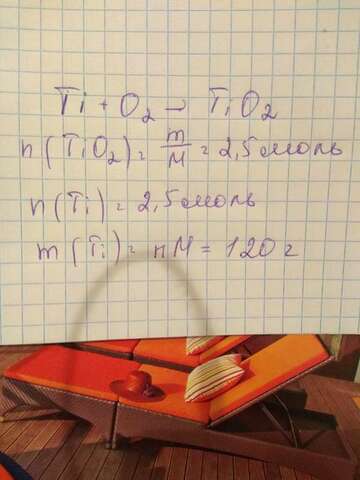 Ti + O2 → TiO2
n (TiO2) = m/M = 2,5 моль
n (Ti) = 2,5 моль
m (Ti) = nM = 120 г